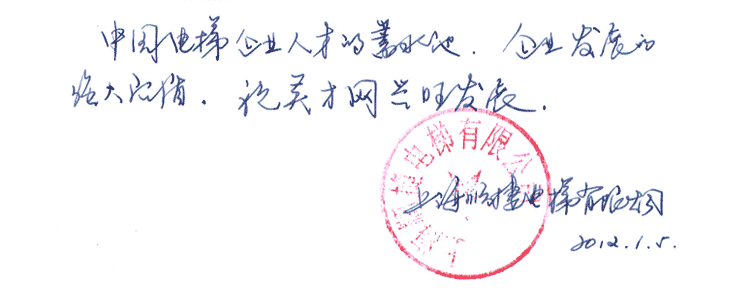 中国电梯企业人才的蓄水池．企业发展的
强大后盾．祝英才网兴旺发展．
电梯有限公
上海 电梯有限公司
2012.1.5.